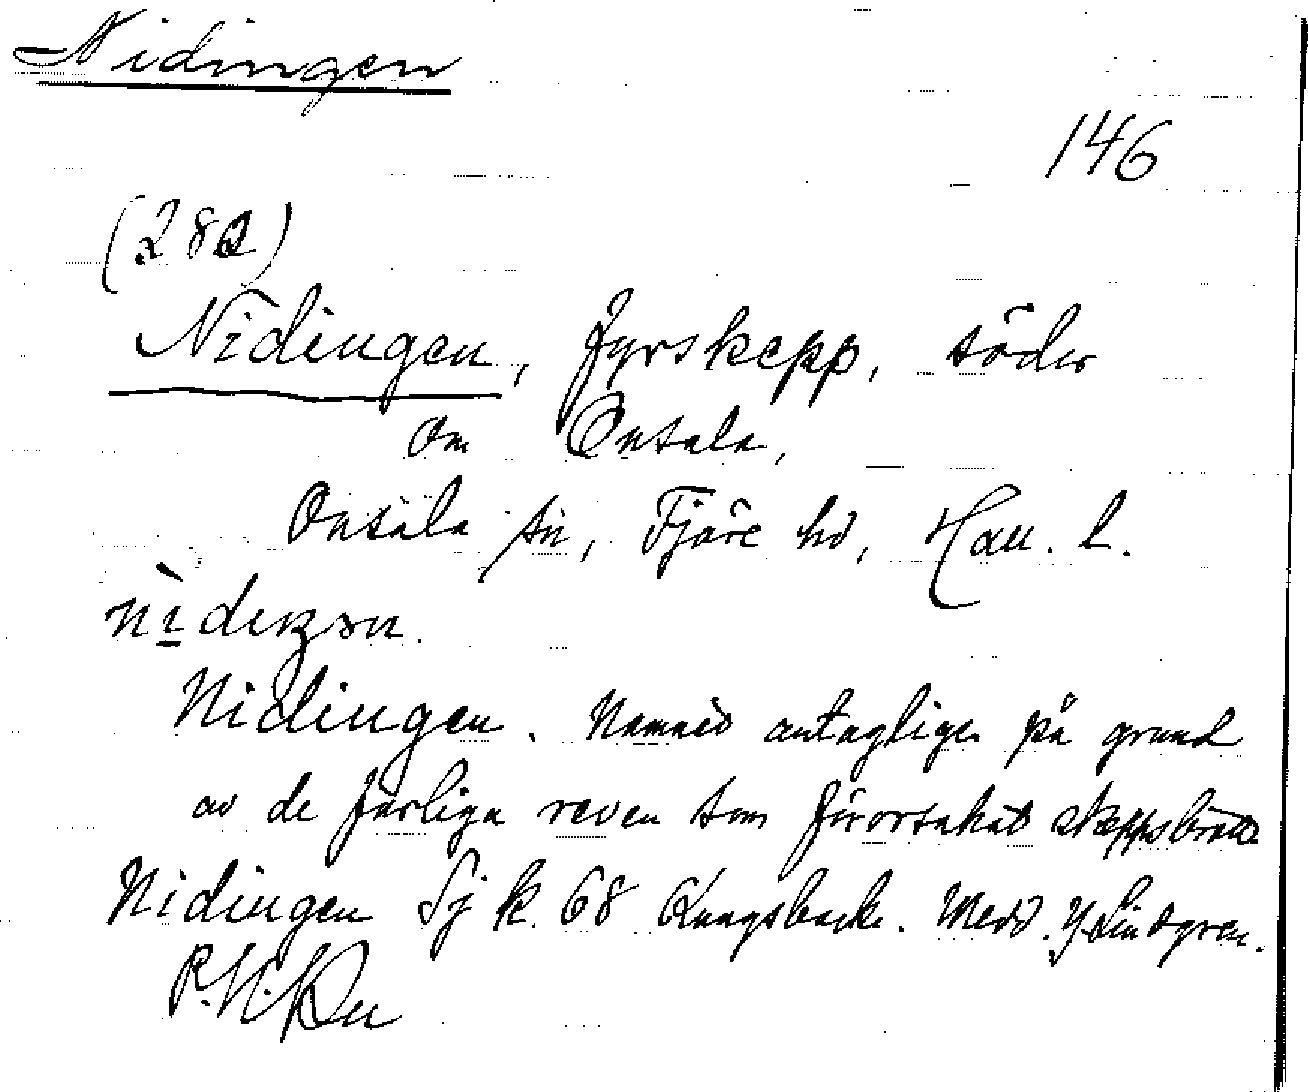 Nidingen
146
(282)
Nidingen, fyrskepp, söder
om Onsala,
Onsala sn, Fjäre hd, Hall. l.
Nidingen. Namned antagligen på grund
av de farliga reven som förorsakat skeppsbrott
Nidingen Sj k. 68 Kungsbacka. Medd. Y Lindgren.